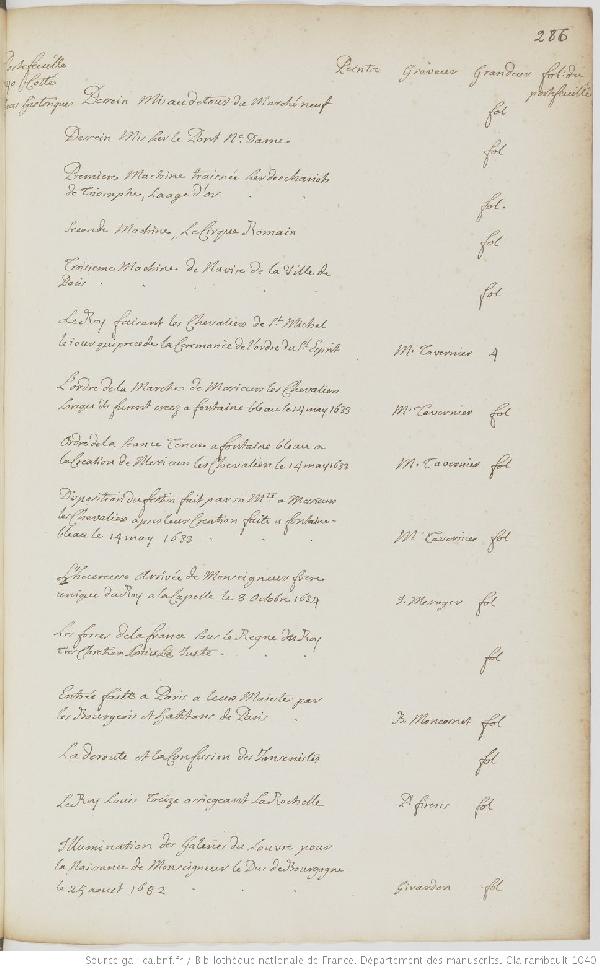 286
Portefeuille Peintre Graveur Grandeur fol. du
portefeuille
Dessein Mis au detour du Marché neuf fol
Dessein Mis sur le Pont Ne. Dame. fol
Premiere Machine trainée sur des chariots
de Triomphe, Laage d'or fol.
Seconde Machine, Le Cirque Romain fol
Troisieme Machine de Navire de la Ville de
Paris fol
Le Roy faisant les Chevaliers de St. Michel
le iour qui precede la Ceremonie de l'ordre du St. Esprit M. Tavernier 4
L'ordre de la Marche de Messieurs les Chevaliers
lorsqu'ils furent creez a fontaine bleau le 14 may 1633 M. Tavernier fol
Ordre de la seance Tenue a fontaine bleau a
la Creation de Messieurs les Chevaliers le 14 may 1633 M. Tavernier fol
Disposition du festin fait par sa Mté. a Messieurs
les Chevaliers apres leur Creation faite a fontaine-
bleau le 14 may 1633 M. Tavernier fol
L'heureuse Arrivée de Monseigneur frere
unique du Roy a la Capelle le 8 Octobre 1634 fol
Les forces de la france sous le Regne du Roy
Tres Chrestien Louis Le Juste fol
Entrée faite a Paris a leurs Maiestés par
les Bourgeois et habitans de Paris B. Moncornet fol
La deroute et la Confusion des Jansenistes fol
Le Roy Louis Treize assiegeant La Rochelle P. firens fol
Illumination des Galeries du Louvre pour
la Naissance de Monseigneur le Duc de Bourgogne
le 25 aoust 1682 Girardon fol
Source gallica.bnf.fr / Bibliothèque nationale de France. Département des manuscrits. Clairambault 1040